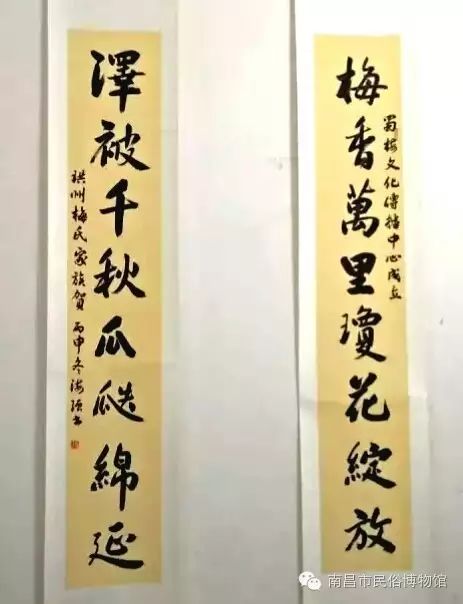 梅香萬里瓊花綻放
蜀梅文化傳播中心成立
澤被千秋瓜瓞綿延
珙州梅氏家族賀 丙申冬海書
南昌市民俗博物馆